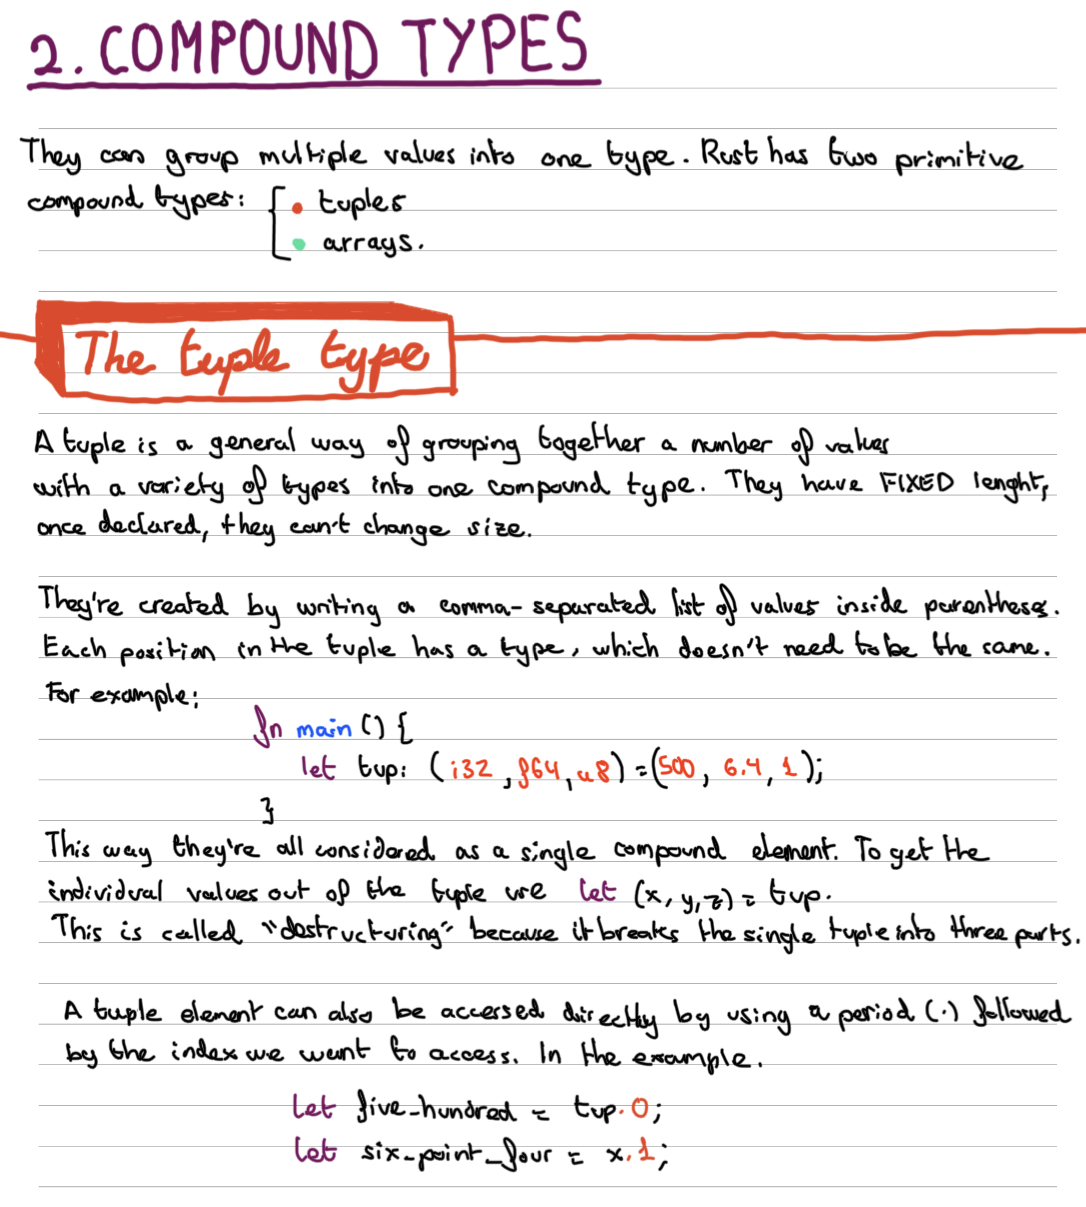 2. COMPOUND TYPES
They can group multiple values into one type. Rust has two primitive
compound types:
• tuples
• arrays.
The tuple type
A tuple is a general way of grouping together a number of values
with a variety of types into one compound type. They have FIXED lenght,
once declared, they can't change size.
They're created by writing a comma-separated list of values inside parentheses.
Each position in the tuple has a type, which doesn't need to be the same.
For example:
fn main () {
let tup: (i32, f64, u8) = (500, 6.4, 1);
}
This way they're all considered as a single compound element. To get the
individual values out of the tuple we let (x, y, z) = tup.
This is called "destructuring" because it breaks the single tuple into three parts.
A tuple element can also be accessed directly by using a period (.) followed
by the index we want to access. In the example.
let five_hundred = tup.0;
let six_point_four = x.1;